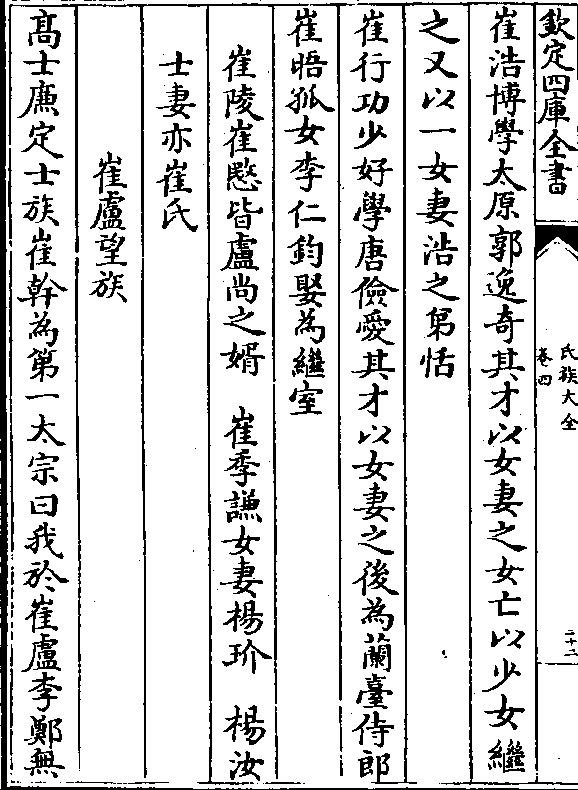 欽定四庫全書
氏族大全
卷四
二十二
崔浩博學太原郭逸奇其才以女妻之女亡以少女繼
之又以一女妻浩之弟恬
崔行功少好學唐儉愛其才以女妻之後為蘭臺侍郎
崔晤孤女李仁鈞娶為繼室
崔陵崔愍皆盧尚之婿　崔季謙女妻楊玠　楊汝
士妻亦崔氏
崔盧望族
髙士亷定士族崔幹為第一太宗曰我於崔盧李鄭無